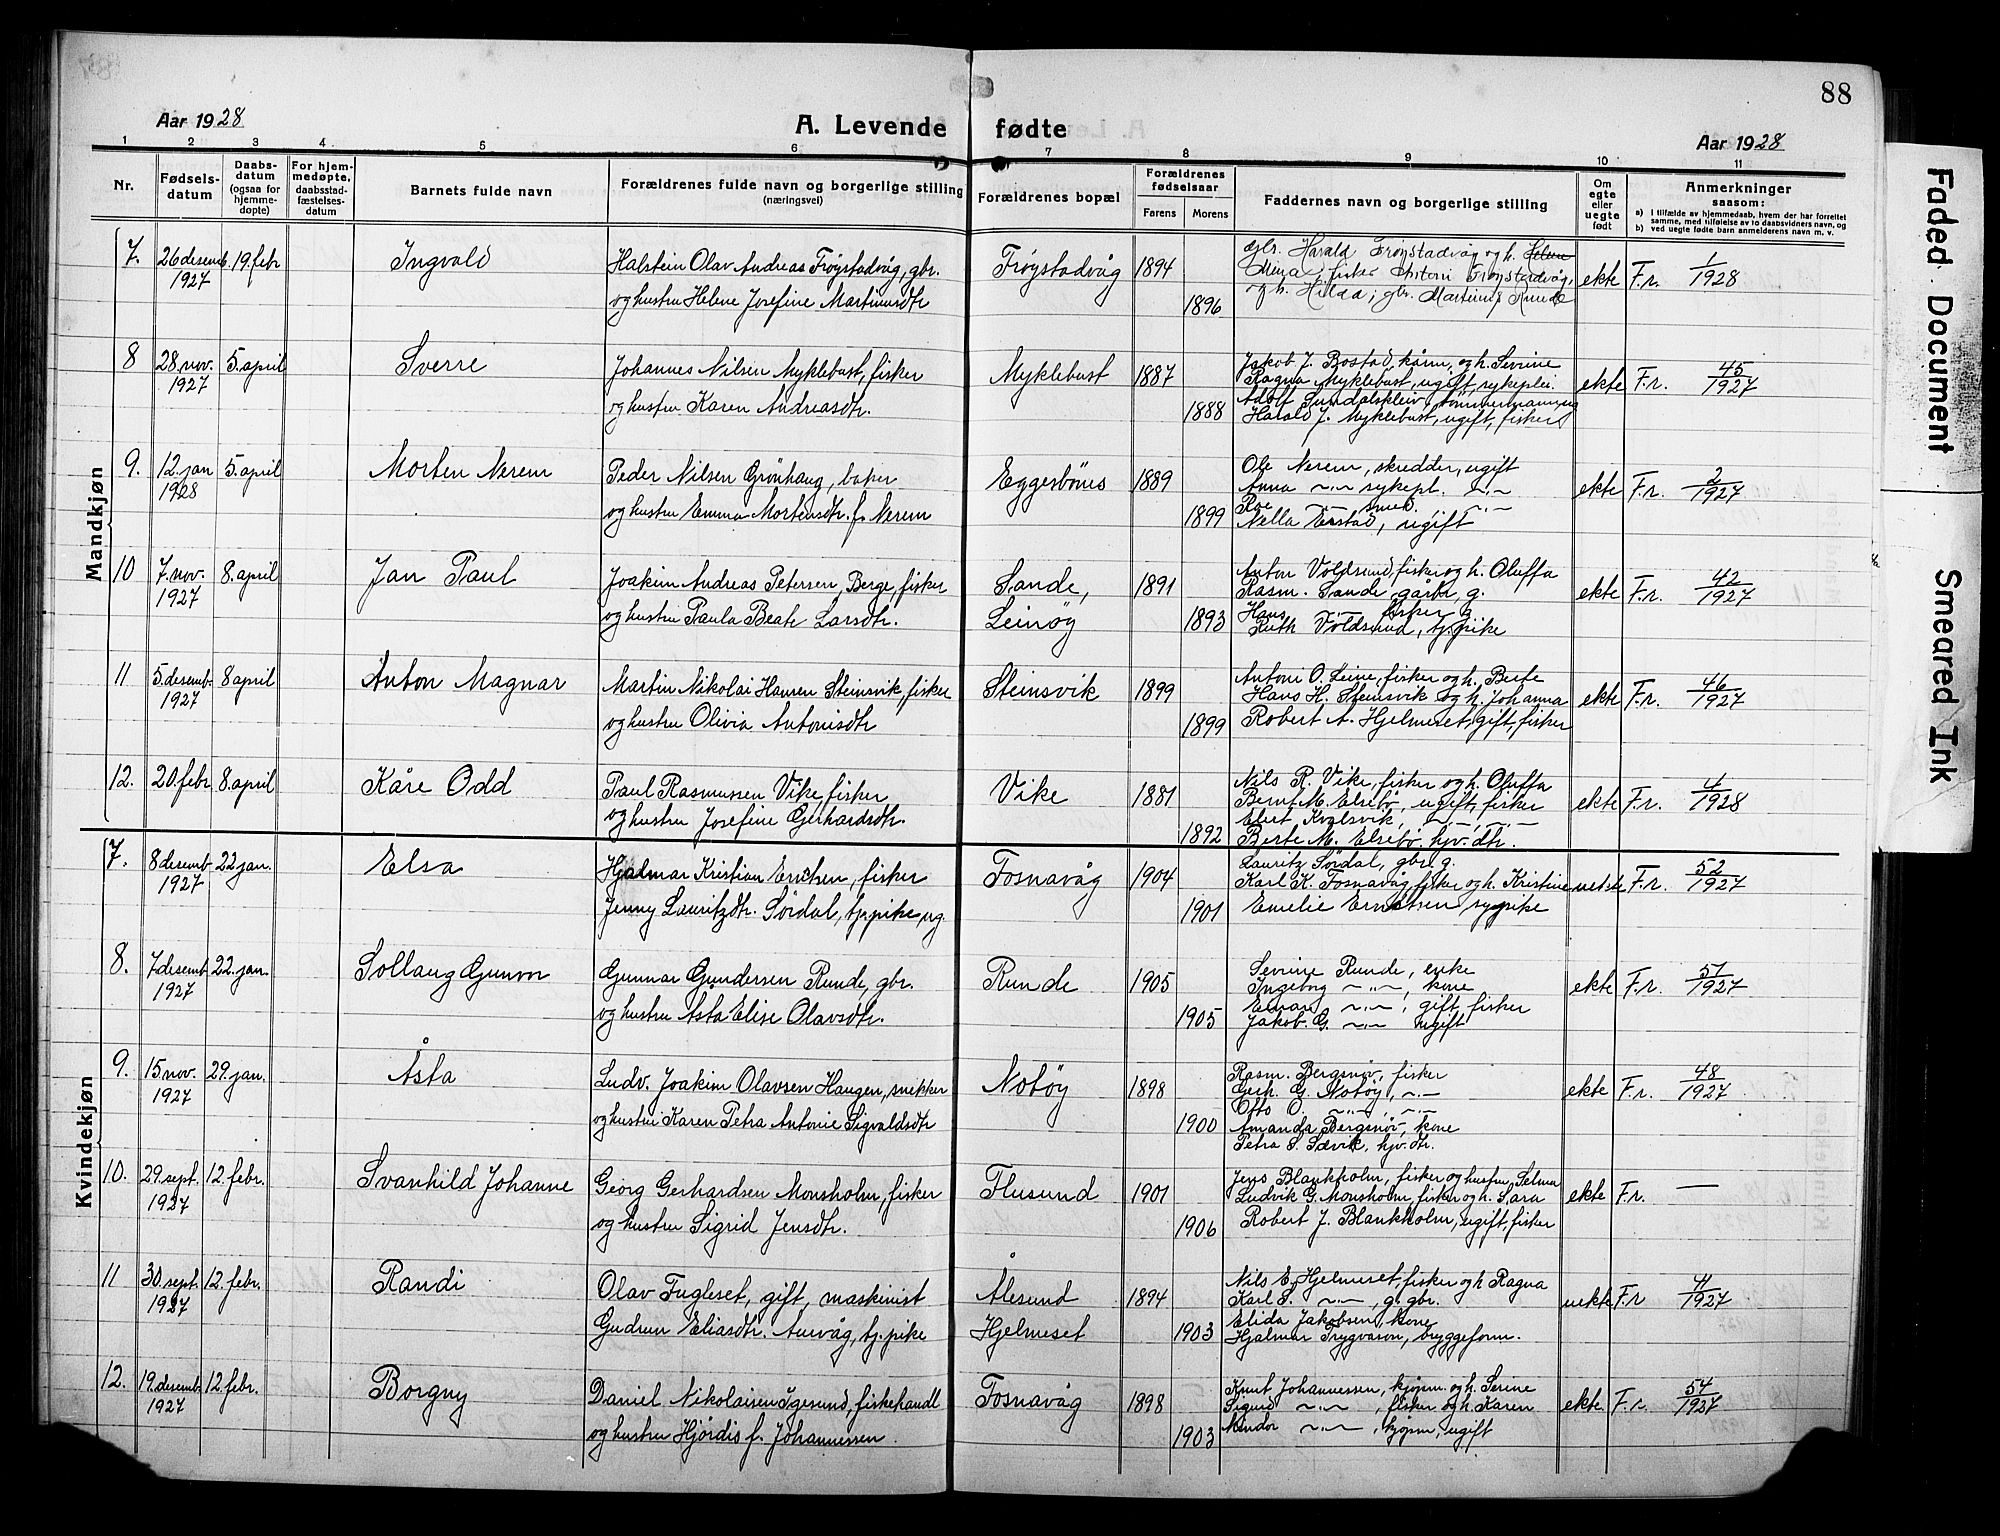 88
Aar 1928
A. Levende fødte
Aar 1928
1 2 3 4 5 6 7 8 9 10 11
Nr.
Fødsels-
datum
Daabs-
datum
(ogsaa for
hjemme-
døpte)
For hjem-
medøpte,
daabsstad-
fæstelses-
datum
Barnets fulde navn
Forældrenes fulde navn og borgerlige stilling
(næringsvei)
Forældrenes bopæl
Forældrenes
fødselsaar
Farens Morens
Faddernes navn og borgerlige stilling
Om
egte
eller
uegte
født
Anmerkninger
saasom:
a) I tilfælde av hjemmedaab, hvem der har forrettet
samme, med tilføielse av to daabsvidners navn, og
b) ved uegte fødte barn anmelderens navn m. v.
Mandkjøn
7. 26 desemb 19. febr Ingvald Halstein Olav Andreas Frøystadvåg, gbr. Frøystadvåg 1894 gbr. Harald Frøystadvåg og h. Helene ekte F.r. 1/1928
1927 og hustru Helene Josefine Martinusdtr 1896 Mina, fisker Antoni Frøystadvåg,
og h. Hilda; gbr. Martinus Runde
8 28. nov. 5. april Sverre Johannes Nilsen Myklebust, fisker Myklebust 1887 Jakob J. Bostad, kåm. og h. Sevine ekte F.r. 45/1927
1927 og hustru Karen Andreasdtr. 1888 Ragna Myklebust, ugift sykeplei.
Adolf Sundalskleiv, tømmermann, ug
Harald J. Myklebust, ugift, fisker
9. 12. jan 5. april Morten Nerem Peder Nilsen Grönhaug, baker Eggesbönes 1889 Ole Nerem, skredder, ugift ekte F.r. 2/1927
1928 og hustru Emma Mortensdtr. f. Nerem 1899 Anna -"- sykepl. -"-
Roe -"- smed. -"-
Nella Erstad, ugift
10 7. nov. 8. april Jan Paul Joakim Andreas Petersen Berge, fisker Sande, 1891 Anton Voldsund, fisker og h. Oluffa ekte F.r. 42/1927
1927 og hustru Paula Beate Larsdtr. Leinøy 1893 Rasm. Sande, gårbr, g.
Hans -"- fisker g
Ruth Voldsund, tj.pike
11 5. desemb. 8 april Anton Magnar Martin Nikolai Hansen Steinsvik, fisker Steinsvik 1899 Antoni O. Leine, fisker og h. Berte ekte F.r. 46/1927
1927 og hustru Olivia Antonisdtr 1899 Hans H. Steinsvik og h. Johanna
Robert A. Hjelmeset, gift, fisker
12. 20. febr 8. april Kåre Odd Paul Rasmussen Vike, fisker Vike 1881 Nils R. Vike, fisker og h. Oluffa ekte F.r. 4/1928
og hustru Josefine Gerhardsdtr. 1892 Bernt M. Elsebø, ugift, fisker
Elert Kvalsvik, -"-, -"-
Berte M. Elsebø, hjv. dtr.
Kvindekjøn
7. 8 desemb 22 jan. Elsa Hjalmar Kristian Erichsen, fisker Fosnavåg 1904 Lauritz Sørdal, gbr. g. uekte F.r. 52/1927
1927 Jenny Lauritzdtr. Sørdal, tj.pike, ug. 1901 Karl K. Fosnavåg, fisker og h. Kristine
Emelie Erntsen, sypike
8. 7 desemb 22. jan. Sollaug Gunvor Gunnar Gundersen Runde, gbr. Runde 1905 Sevrine Runde, enke ekte F.r. 51/1927
1927 og hustru Asta Elise Olavsdtr. 1905 Ingeborg -"-, kone
Einar -"-, gift, fisker
Jakob. G. -"- ugift
9. 15. nov. 29. jan. Åsta Ludv. Joakim Olavsen Haugen, snekker Notøy 1898 Rasm. Bergsnov, fisker ekte F.r. 48/1927
1927 og hustru Karen Petra Antonie Sigvaldsdtr 1900 Gerh. G. Notøy, -"-
Otto O. -"-, -"-
Amanda Bergsnov, kone
Petra S. Sævik, hjv. dtr.
10. 29. sept. 12. febr. Svanhild Johanne Georg Gerhardsen Monsholm, fisker Flusund 1901 Jens Blankholm, fisker og hustru Selma ekte F.r. —
1927 og hustru Sigrid Jensdtr. 1906 Ludvik G. Monsholm, fisker og h. Sara
Robert J. Blankholm, ugift, fisker
11 30. sept. 12. febr. Randi Olav Fugleset, gift, maskinist Ålesund 1894 Nils E. Hjelmeset, fisker og h. Ragna uekte F.r 41/1927
1927 Gudrun Eliasdtr. Aurvåg, tj. pike Hjelmeset 1903 Karl S. -"-, g. gbr.
Elida Jakobsen, kone
Hjalmar Trygvason, bryggeform.
12. 19. desemb. 12. febr. Borgny Daniel Nikolaisen Igesund, fiskehandl Fosnavåg 1898 Knut Johannessen, kjøpm. og h. Serine ekte F.r. 54/1927
1927 og hustru Hjördis f. Johannessen. 1903 Sigurd -"-, fisker og h. Karen
Mindor -"-, kjøpm, ugift
Faded Document
Smeared Ink